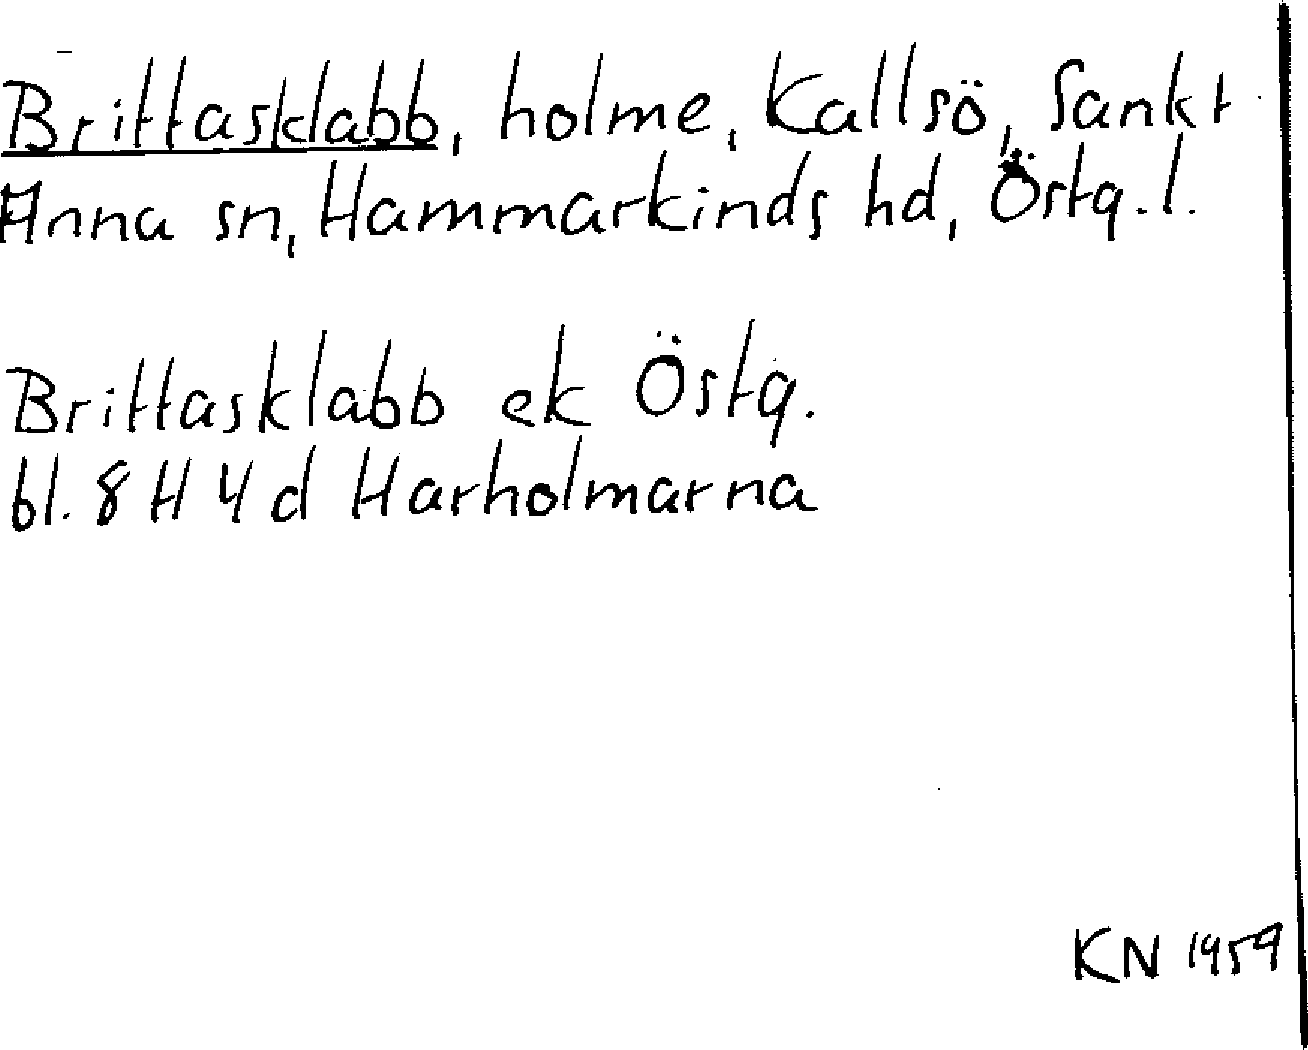 Brittasklabb, holme, Kallsö, Sankt
Anna sn, Hammarkinds hd, Östg. l.
Brittasklabb ek Östg.
bl. 8 H 4 d Harholmarna
KN 1959